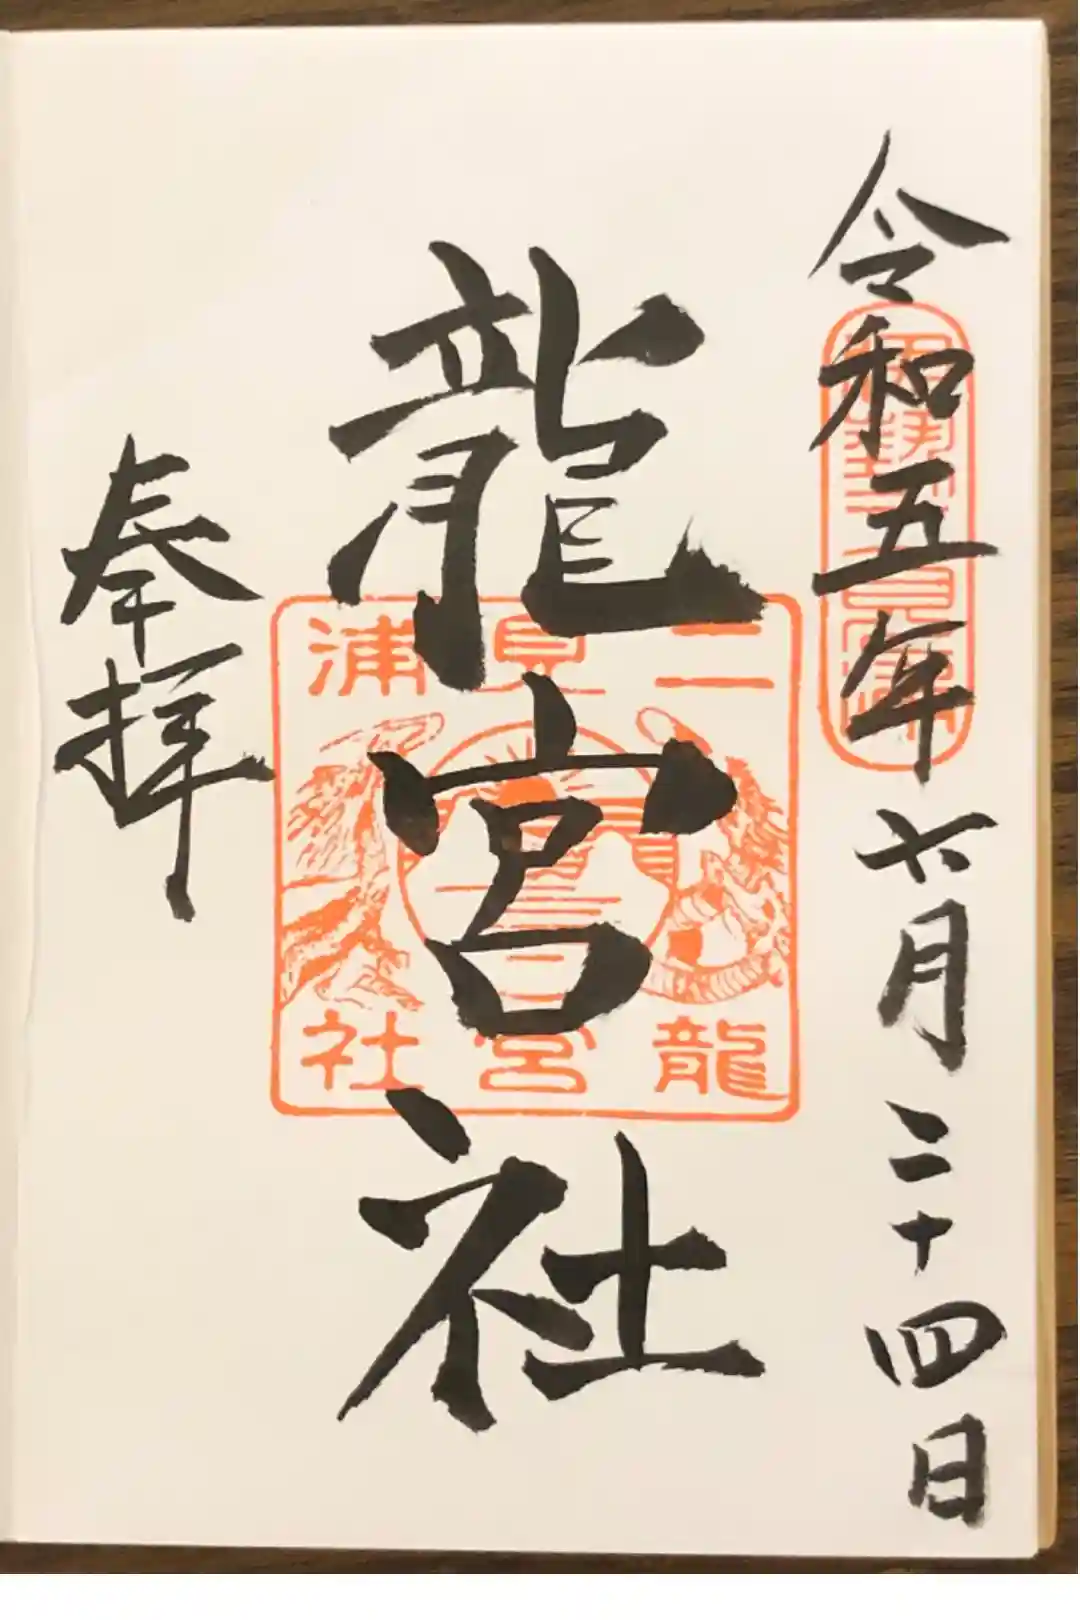 令和五年六月二十四日
伊勢二見浦
龍宮社
二見浦
龍宮社
奉拝